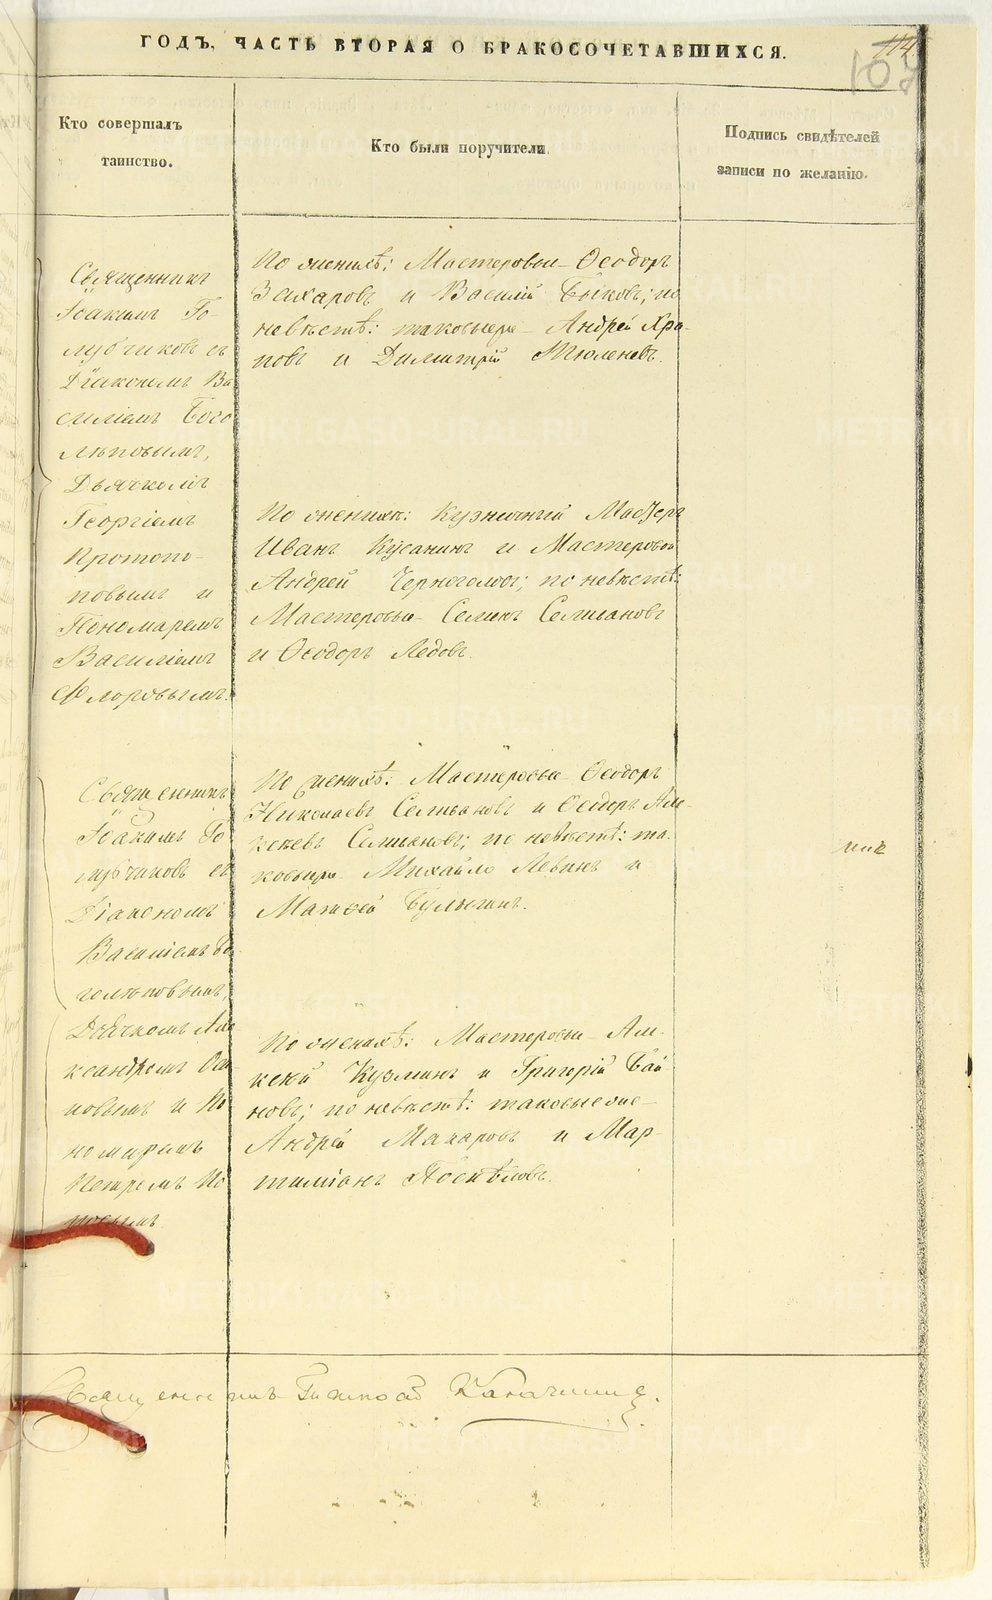 ГОДЪ, ЧАСТЬ ВТОРАЯ О БРАКОСОЧЕТАВШИХСЯ.
114
107
Кто совершалъ
таинство.
Кто были поручители.
Подпись свидѣтелей
записи по желанію.
Священникъ
Іоакимъ Го-
лубчиковъ съ
Діакономъ Ва
силіемъ Бого
лѣповымъ,
Дьячкомъ
Георгіемъ
Протопо-
повымъ и
Пономаремъ
Василіемъ
Флоровымъ.
По женихѣ: Мастеровые Ѳеодоръ
Захаровъ и Василій Быковъ; по
невѣстѣ: таковыеже Андрей Хра-
повъ и Димитрій Тюленевъ.
По женихѣ: Кузничный Мастеръ
Иванъ Кусакинъ и Мастеровой
Андрей Черноголовъ; по невѣстѣ:
Мастеровые Селивановъ
и Ѳеодоръ Ледовъ.
Священникъ
Іоакимъ Го
лубчиковъ съ
Діакономъ
Василіемъ Бо
голѣповымъ,
Дьячкомъ Але
ксандромъ Оси
повымъ и По
номаремъ
Петромъ По
повымъ
По женихѣ: Мастеровые Ѳеодоръ
Николаевъ Селивановъ и Ѳеодоръ Але-
ксѣевъ Селивановъ; по невѣстѣ: та-
ковыеже Михайло Левинъ и
Матѳей Булыгинъ.
По женихѣ: Мастеровые Але-
ксѣй Кузминъ и Григорій Бай
новъ; по невѣстѣ: таковыеже
Андрей Макаровъ и Мар-
тиміанъ Поспѣловъ.
Священникъ
METRIKI.GASO-URAL.RU